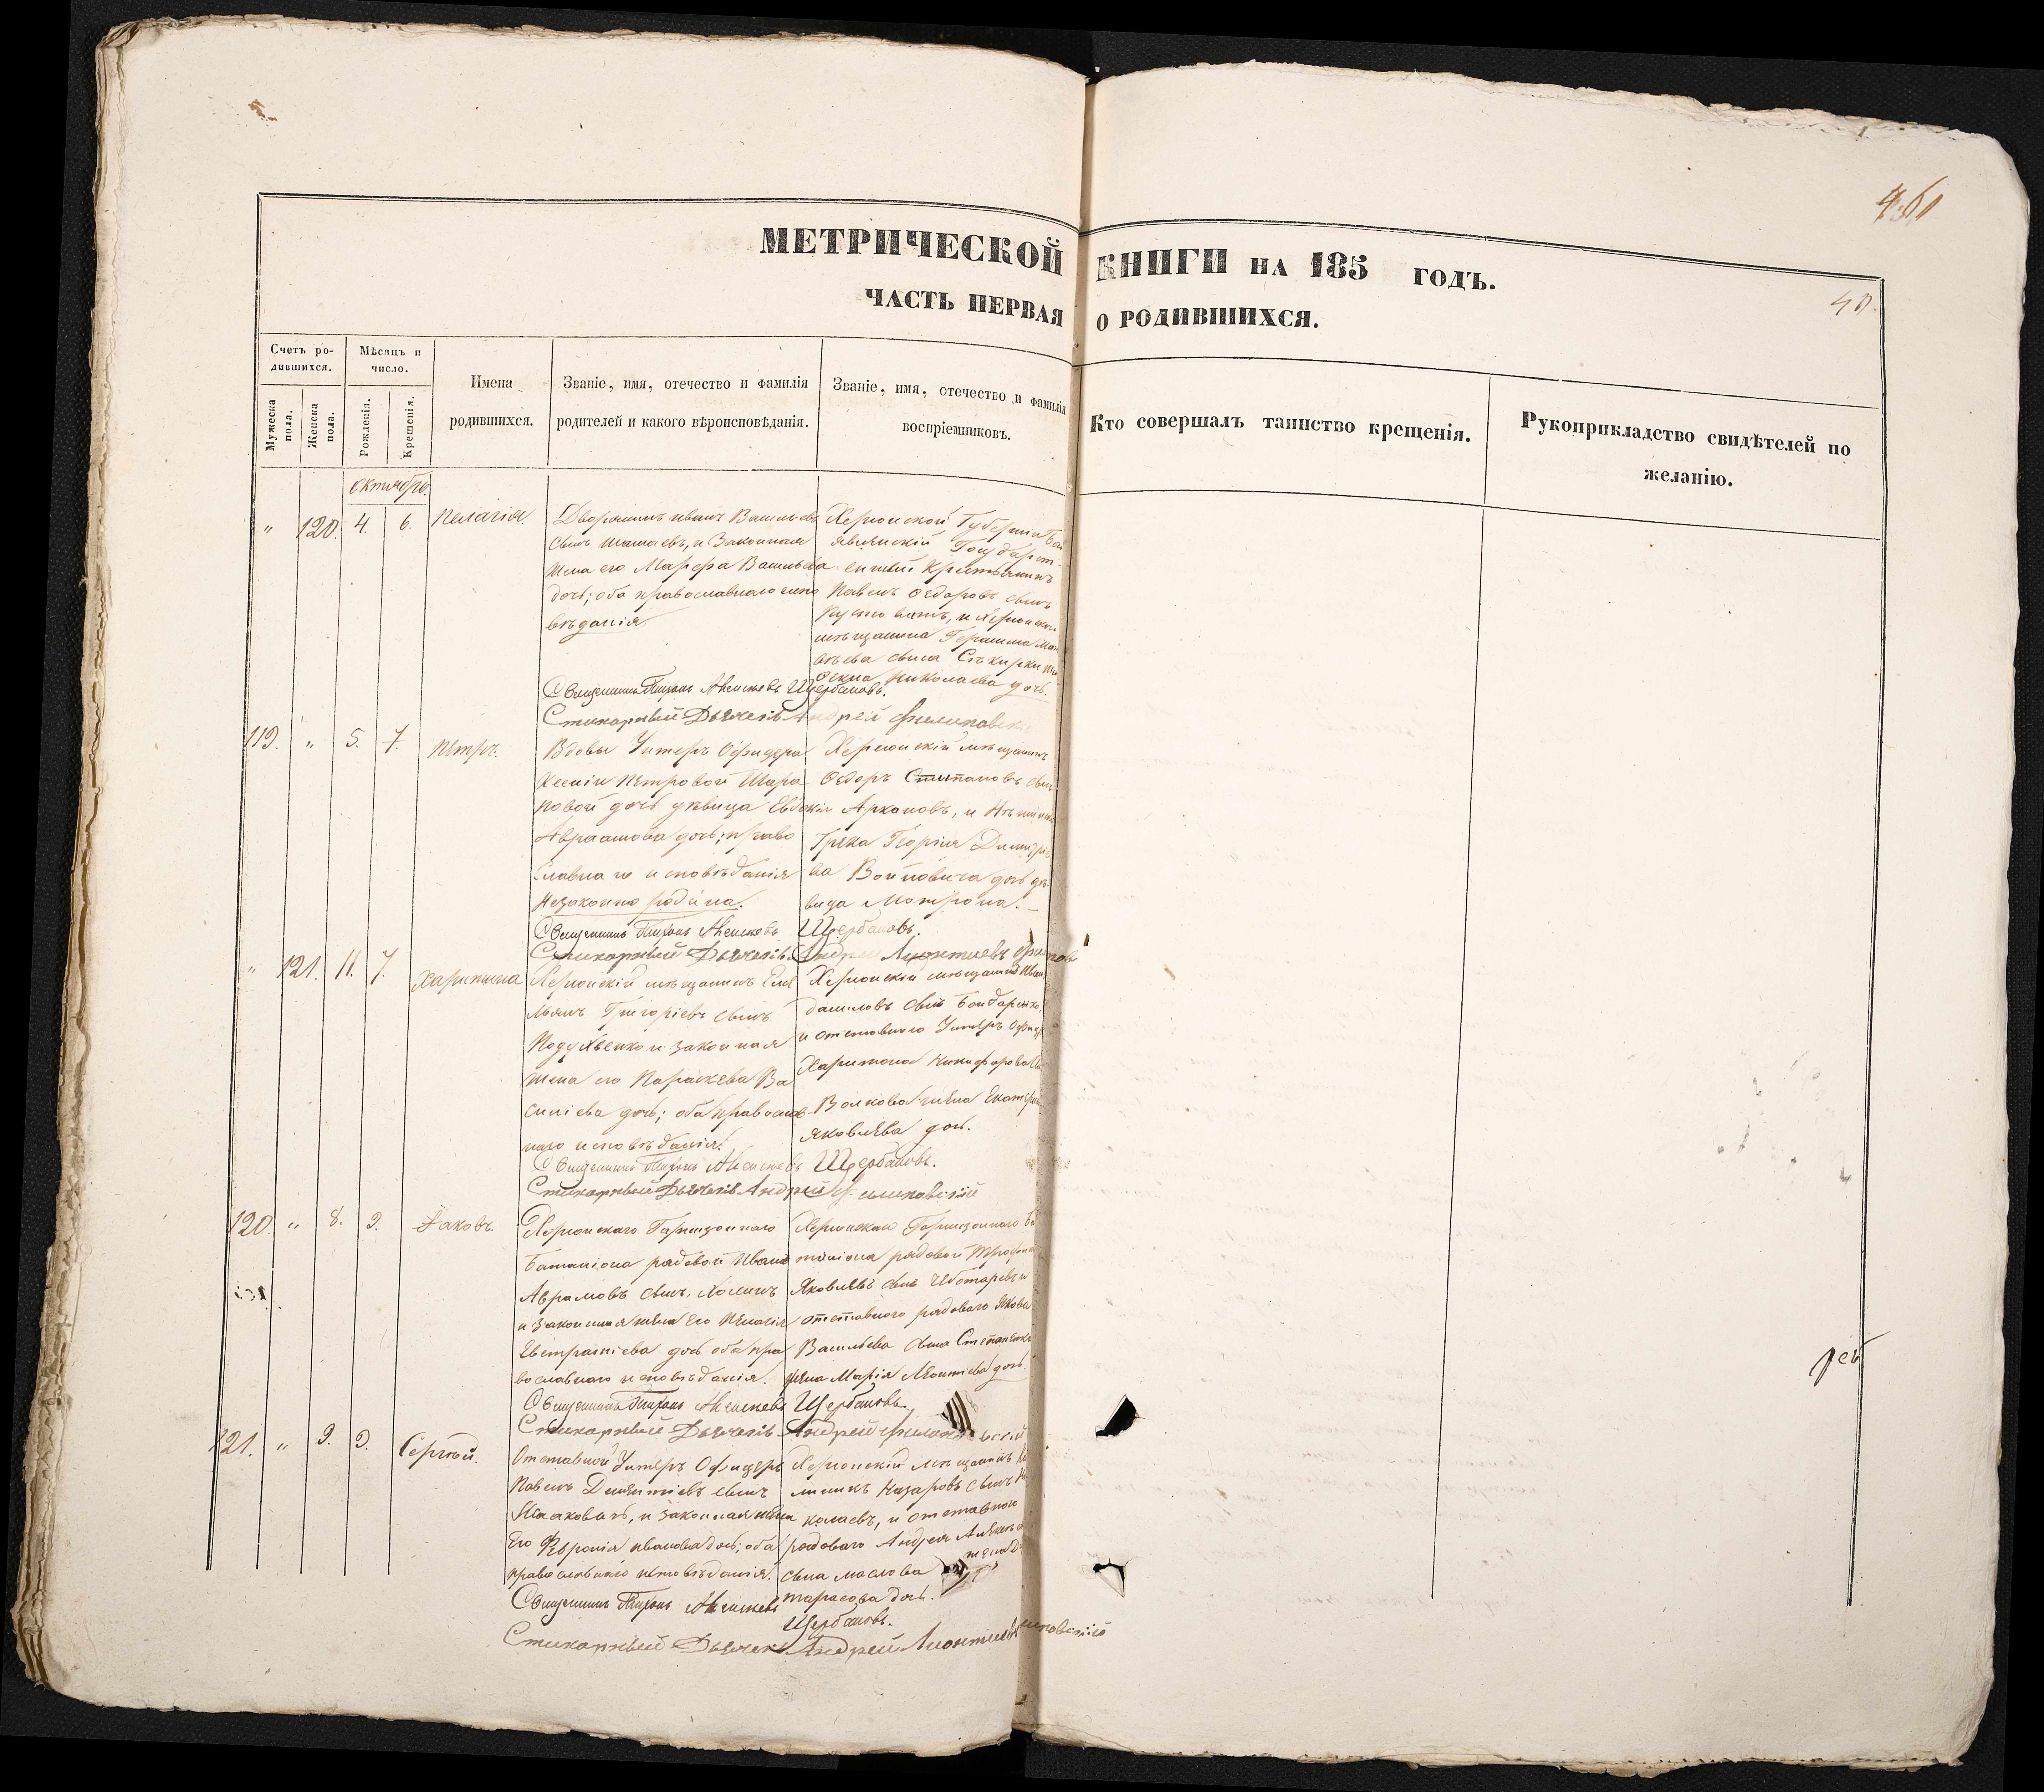 460
МЕТРИЧЕСКОЙ КНИГИ НА 185 ГОДЪ.
ЧАСТЬ ПЕРВАЯ О РОДИВШИХСЯ.
40.
Счетъ ро-
дившихся.
Мѣсяцъ и
число.
Мужеска
пола.
Женска
пола.
Рожденія.
Крещенія.
Имена
родившихся.
Званіе, имя, отечество и фамилія
родителей и какого вѣроисповѣданія.
Званіе, имя, отечество и фамилія
воспріемниковъ.
Кто совершалъ таинство крещенія.
Рукоприкладство свидѣтелей по
желанію.
Октябрь.
" 120. 4. 6. Пелагія.
Дворянинъ Иванъ Васильевъ
сынъ и законная
жена его Марфа Васильева
дочь; оба православнаго испо
вѣданія
Херсонской Губерніи
Государст-
Крестьянинъ
Павелъ Ѳедоровъ сынъ
и Херсонскаго
мѣщанина Герасима
сына
Николаева дочь.
Священникъ Тихонъ Алексѣевъ Щербаковъ.
Стихарный Дьячекъ Андрей
119. " 5. 7. Петръ.
Вдовы Унтеръ Офицера
Ксеніи Петровой Шара
повой дочь дѣвица Евдокія
Авраамова дочь; право
славнаго исповѣданія
незаконно
Херсонскій мѣщанинъ
Ѳедоръ Степановъ сынъ
Аркановъ, и
Грека Георгія Димитріе
ва Войновича дочь дѣ
вица Матрона.
Священникъ Тихонъ Алексѣевъ Щербаковъ.
Стихарный Дьячекъ Андрей Леонтіевъ
" 121. 11. 7. Харитина
Херсонскій мѣщанинъ Емѣ
льянъ Григоріевъ сынъ
и законная
жена его Параскева Ва
силіева дочь; оба православ-
наго исповѣданія.
Херсонскій мѣщанинъ Иванъ
Даниловъ сынъ Бондаренко,
и отставнаго Унтеръ Офице
Харитона Никифорова
Волкова жена Екатерина
Яковлева дочь.
Священникъ Тихонъ Алексѣевъ Щербаковъ.
Стихарный Дьячекъ Андрей
120. " 8. 9. Іаковъ.
Херсонскаго Гарнизоннаго
Баталіона рядовой Иванъ
Аврамовъ сынъ
и законная жена его Пелагія
Евстратіева дочь оба пра
вославнаго исповѣданія.
Херсонскаго Гарнизоннаго Ба
таліона рядовой Трофимъ
Яковлевъ сынъ Чеботаревъ и
отставнаго рядоваго Якова
Васильева сына Степаненка
жена Марія Леонтіева дочь.
Священникъ Тихонъ Алексѣевъ Щербаковъ.
Стихарный Дьячекъ Андрей
121. " 9. 9. Сергѣй.
Отставной Унтеръ Офицеръ
Павелъ Дементіевъ сынъ
и законная жена
его Ѳевронія Иванова дочь; оба
православнаго исповѣданія.
Херсонскій мѣщанинъ
Назаровъ сынъ
колаевъ, и отставнаго
рядоваго Андрея
сына Маслова жена
Тарасова дочь.
Священникъ Тихонъ Алексѣевъ
Щербаковъ.
Стихарный Дьячекъ Андрей Леонтіевъ